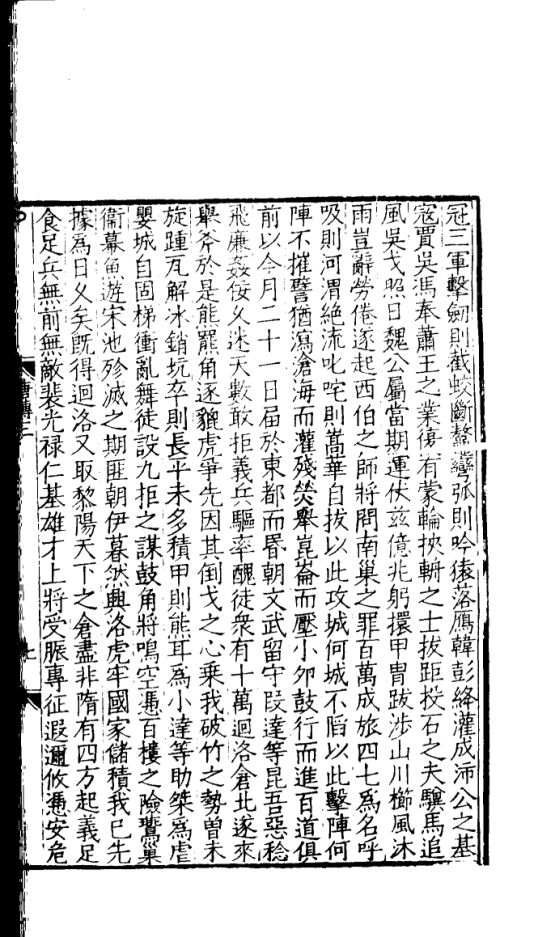 冠三軍擊劒則截蛟斷鼇彎弧則吟猿落鴈韓彭絳灌成沛公之基
寇賈吳馮奉蕭王之業復有蒙輪挾輈之士拔距投石之夫驥馬追
風吳戈照日魏公屬當期運伏兹億兆躬擐甲胄跋涉山川櫛風沐
雨豈辭勞倦遂起西伯之師將問南巢之罪百萬成旅四七爲名呼
吸則河渭絶流叱咤則嵩華自拔以此攻城何城不陷以此擊陣何
陣不摧譬猶瀉滄海而灌殘熒舉崑崙而壓小卵鼓行而進百道俱
前以今月二十一日届於東都而昬朝文武留守段達等昆吾惡稔
飛廉姦佞乆迷天數敢拒義兵驅率醜徒衆有十萬迴洛倉北遂來
舉斧於是熊羆角逐貔虎爭先因其倒戈之心乘我破竹之勢曽未
旋踵瓦解冰銷坑卒則長平未多積甲則熊耳爲小達等助桀爲虐
嬰城自固梯衝亂舞徒設九拒之謀鼓角將鳴空憑百樓之險鷰巢
衞幕魚遊宋池殄滅之期匪朝伊暮然興洛虎牢國家儲積我已先
據爲日乆矣既得迴洛又取黎陽天下之倉盡非隋有四方起義足
食足兵無前無敵裴光禄仁基雄才上將受脤專征遐邇攸憑安危
七